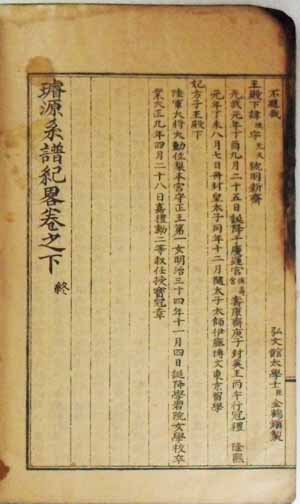 不應裁
王殿下諱垠字天天號明新齋
光武元年丁酉九月二十五日誕降于慶運宮壽康齋庚子封英王丙午行冠禮隆熙
元年丁未八月七日冊封皇太子同年十二月隨太子太師伊藤博文東京留學
妃方子王殿下
陸軍大將大勳位梨本宮守正王第一女明治三十四年十一月四日誕降學習院女學校卒
業大正九年四月二十八日嘉禮勳二等叙任授寶冠章
弘文館太學士臣金鶴鎮製
璿源系譜紀畧卷之下
終